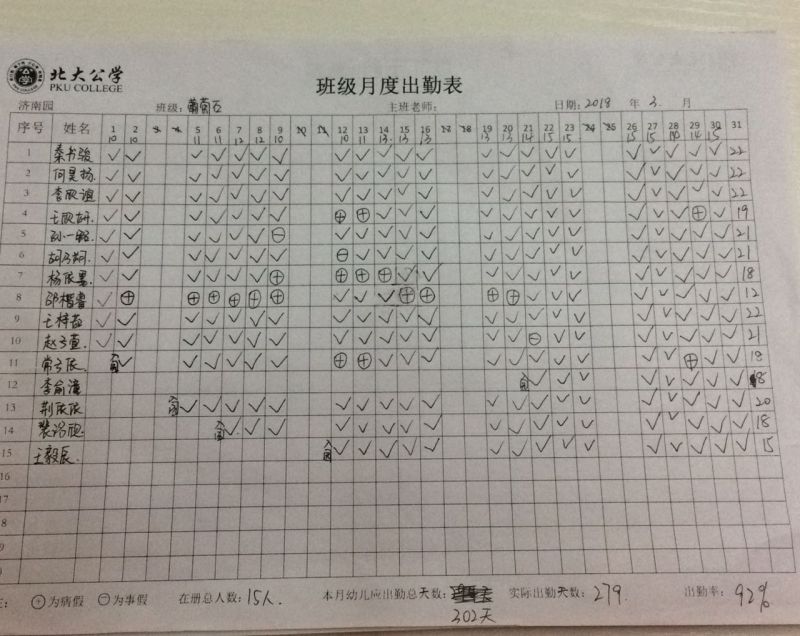 北大公学
PKU COLLEGE
班级月度出勤表
济南园 班级: 葡萄石 主班老师: 日期: 2018 年 3. 月
序号 姓名 1 2 3 4 5 6 7 8 9 10 11 12 13 14 15 16 17 18 19 20 21 22 23 24 25 26 27 28 29 30 31
10 10 11 11 12 12 10 10 11 13 13 13 13 13 14 15 15 15 15 14 15
1 ✓ ✓ ✓ ✓ ✓ ✓ ✓ ✓ ✓ ✓ ✓ ✓ ✓ ✓ ✓ ✓ ✓ ✓ ✓ ✓ ✓ ✓ 22
2 何昊杨 ✓ ✓ ✓ ✓ ✓ ✓ ✓ ✓ ✓ ✓ ✓ ✓ ✓ ✓ ✓ ✓ ✓ ✓ ✓ ✓ ✓ ✓ 22
3 李欣谊 ✓ ✓ ✓ ✓ ✓ ✓ ✓ ✓ ✓ ✓ ✓ ✓ ✓ ✓ ✓ ✓ ✓ ✓ ✓ ✓ ✓ ✓ 22
4 王欣妍. ✓ ✓ ✓ ✓ ✓ ✓ ✓ ⊕ ⊕ ✓ ✓ ✓ ✓ ✓ ✓ ✓ ✓ ✓ ✓ ✓ ⊕ ✓ 19
5 ✓ ✓ ✓ ✓ ✓ ✓ ⊖ ✓ ✓ ✓ ✓ ✓ ✓ ✓ ✓ ✓ ✓ ✓ ✓ ✓ ✓ ✓ 21
6 ✓ ✓ ✓ ✓ ✓ ✓ ✓ ⊖ ✓ ✓ ✓ ✓ ✓ ✓ ✓ ✓ ✓ ✓ ✓ ✓ ✓ ✓ 21
7 ✓ ✓ ✓ ✓ ✓ ✓ ⊕ ⊕ ⊕ ⊕ ✓ ✓ ✓ ✓ ✓ ✓ ✓ ✓ ✓ ✓ ✓ ✓ 18
8 ✓ ⊕ ⊕ ⊕ ⊕ ⊕ ⊕ ✓ ✓ ✓ ⊕ ⊕ ⊕ ⊕ ✓ ✓ ✓ ✓ ✓ ✓ ✓ ✓ 12
9 ✓ ✓ ✓ ✓ ✓ ✓ ✓ ✓ ✓ ✓ ✓ ✓ ✓ ✓ ✓ ✓ ✓ ✓ ✓ ✓ ✓ ✓ 22
10 ✓ ✓ ✓ ✓ ✓ ✓ ✓ ✓ ✓ ✓ ✓ ✓ ✓ ✓ ⊖ ✓ ✓ ✓ ✓ ✓ ✓ ✓ 21
11 入园 ✓ ✓ ✓ ✓ ✓ ✓ ⊕ ⊕ ✓ ✓ ✓ ✓ ✓ ✓ ✓ ✓ ✓ ✓ ⊕ ✓ 18
12 李俞潼 入园 ✓ ✓ ✓ ✓ ✓ ✓ ✓ ✓ 8
13 入园 ✓ ✓ ✓ ✓ ✓ ✓ ✓ ✓ ✓ ✓ ✓ ✓ ✓ ✓ ✓ ✓ ✓ ✓ ✓ ✓ 20
14 入园 ✓ ✓ ✓ ✓ ✓ ✓ ✓ ✓ ✓ ✓ ✓ ✓ ✓ ✓ ✓ ✓ ✓ ✓ 18
15 王毅辰. 入园 ✓ ✓ ✓ ✓ ✓ ✓ ✓ ✓ ✓ ✓ ✓ ✓ ✓ ✓ ✓ 15
16
17
18
⊕为病假 ⊖为事假 在册总人数: 15人. 本月幼儿应出勤总天数: 302天 实际出勤天数: 279. 出勤率: 92%